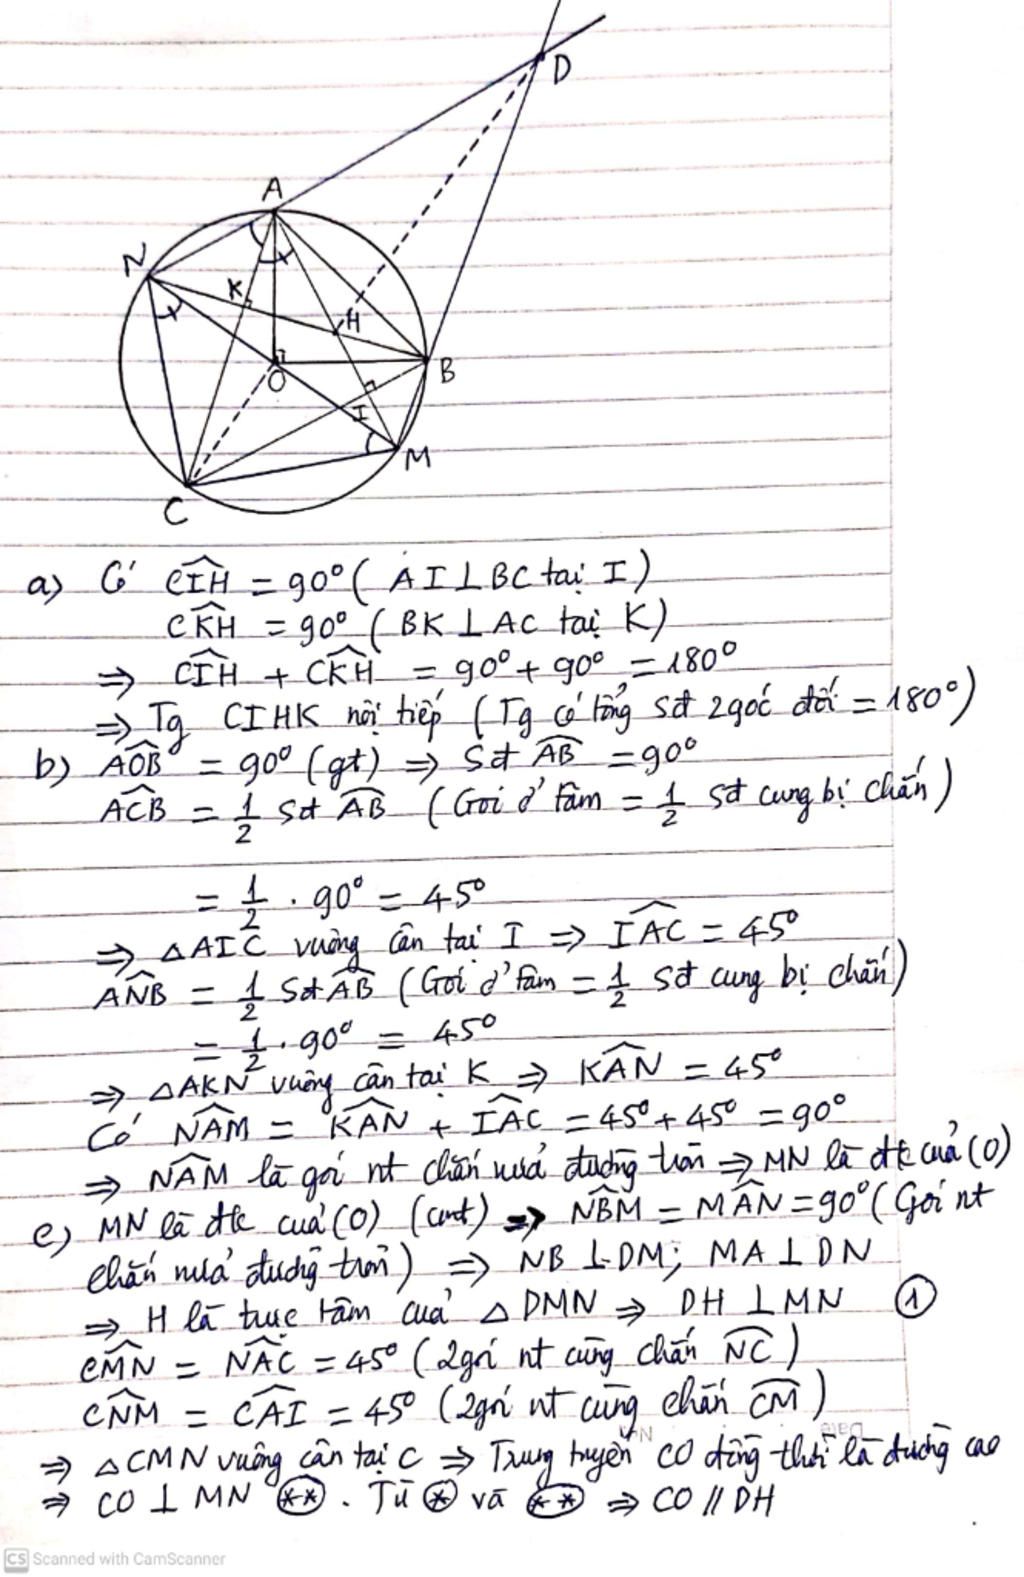 D
A
N
K
H
O
B
I
M
C
a) Có CIH = 90° ( AI ⊥ BC tại I )
CKH = 90° ( BK ⊥ AC tại K )
⇒ CIH + CKH = 90° + 90° = 180°
⇒ Tg CIHK nội tiếp ( Tg có tổng sđ 2 góc đối = 180° )
b) AOB = 90° (gt) ⇒ Sđ AB = 90°
ACB = 1/2 Sđ AB ( Gói ở tâm = 1/2 sđ cung bị chắn )
= 1/2 . 90° = 45°
⇒ △AIC vuông cân tại I ⇒ IAC = 45°
ANB = 1/2 Sđ AB ( Gói ở tâm = 1/2 sđ cung bị chắn )
= 1/2 . 90° = 45°
⇒ △AKN vuông cân tại K ⇒ KAN = 45°
Có NAM = KAN + IAC = 45° + 45° = 90°
⇒ NAM là gói nt chắn nửa đường tròn ⇒ MN là đk của (O)
c) MN là đk của (O) (cmt) ⇒ NBM = MAN = 90° ( Gói nt
chắn nửa đường tròn ) ⇒ NB ⊥ DM ; MA ⊥ DN
⇒ H là trực tâm của △DMN ⇒ DH ⊥ MN ①
CMN = NAC = 45° ( 2 gói nt cùng chắn NC )
CNM = CAI = 45° ( 2 gói nt cùng chắn CM )
⇒ △CMN vuông cân tại C ⇒ Trung tuyến CO đồng thời là đường cao
⇒ CO ⊥ MN (**) . Từ (*) và (**) ⇒ CO // DH
CS Scanned with CamScanner